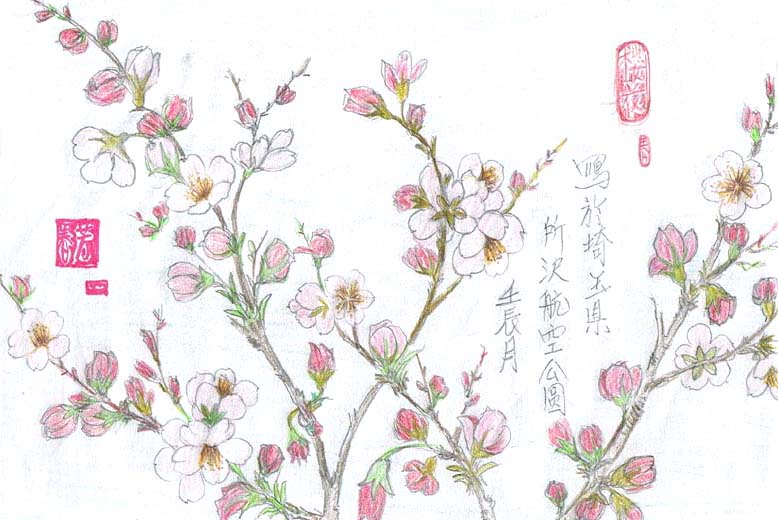 櫻花
寫於埼玉県
所沢航空公園
壬辰月